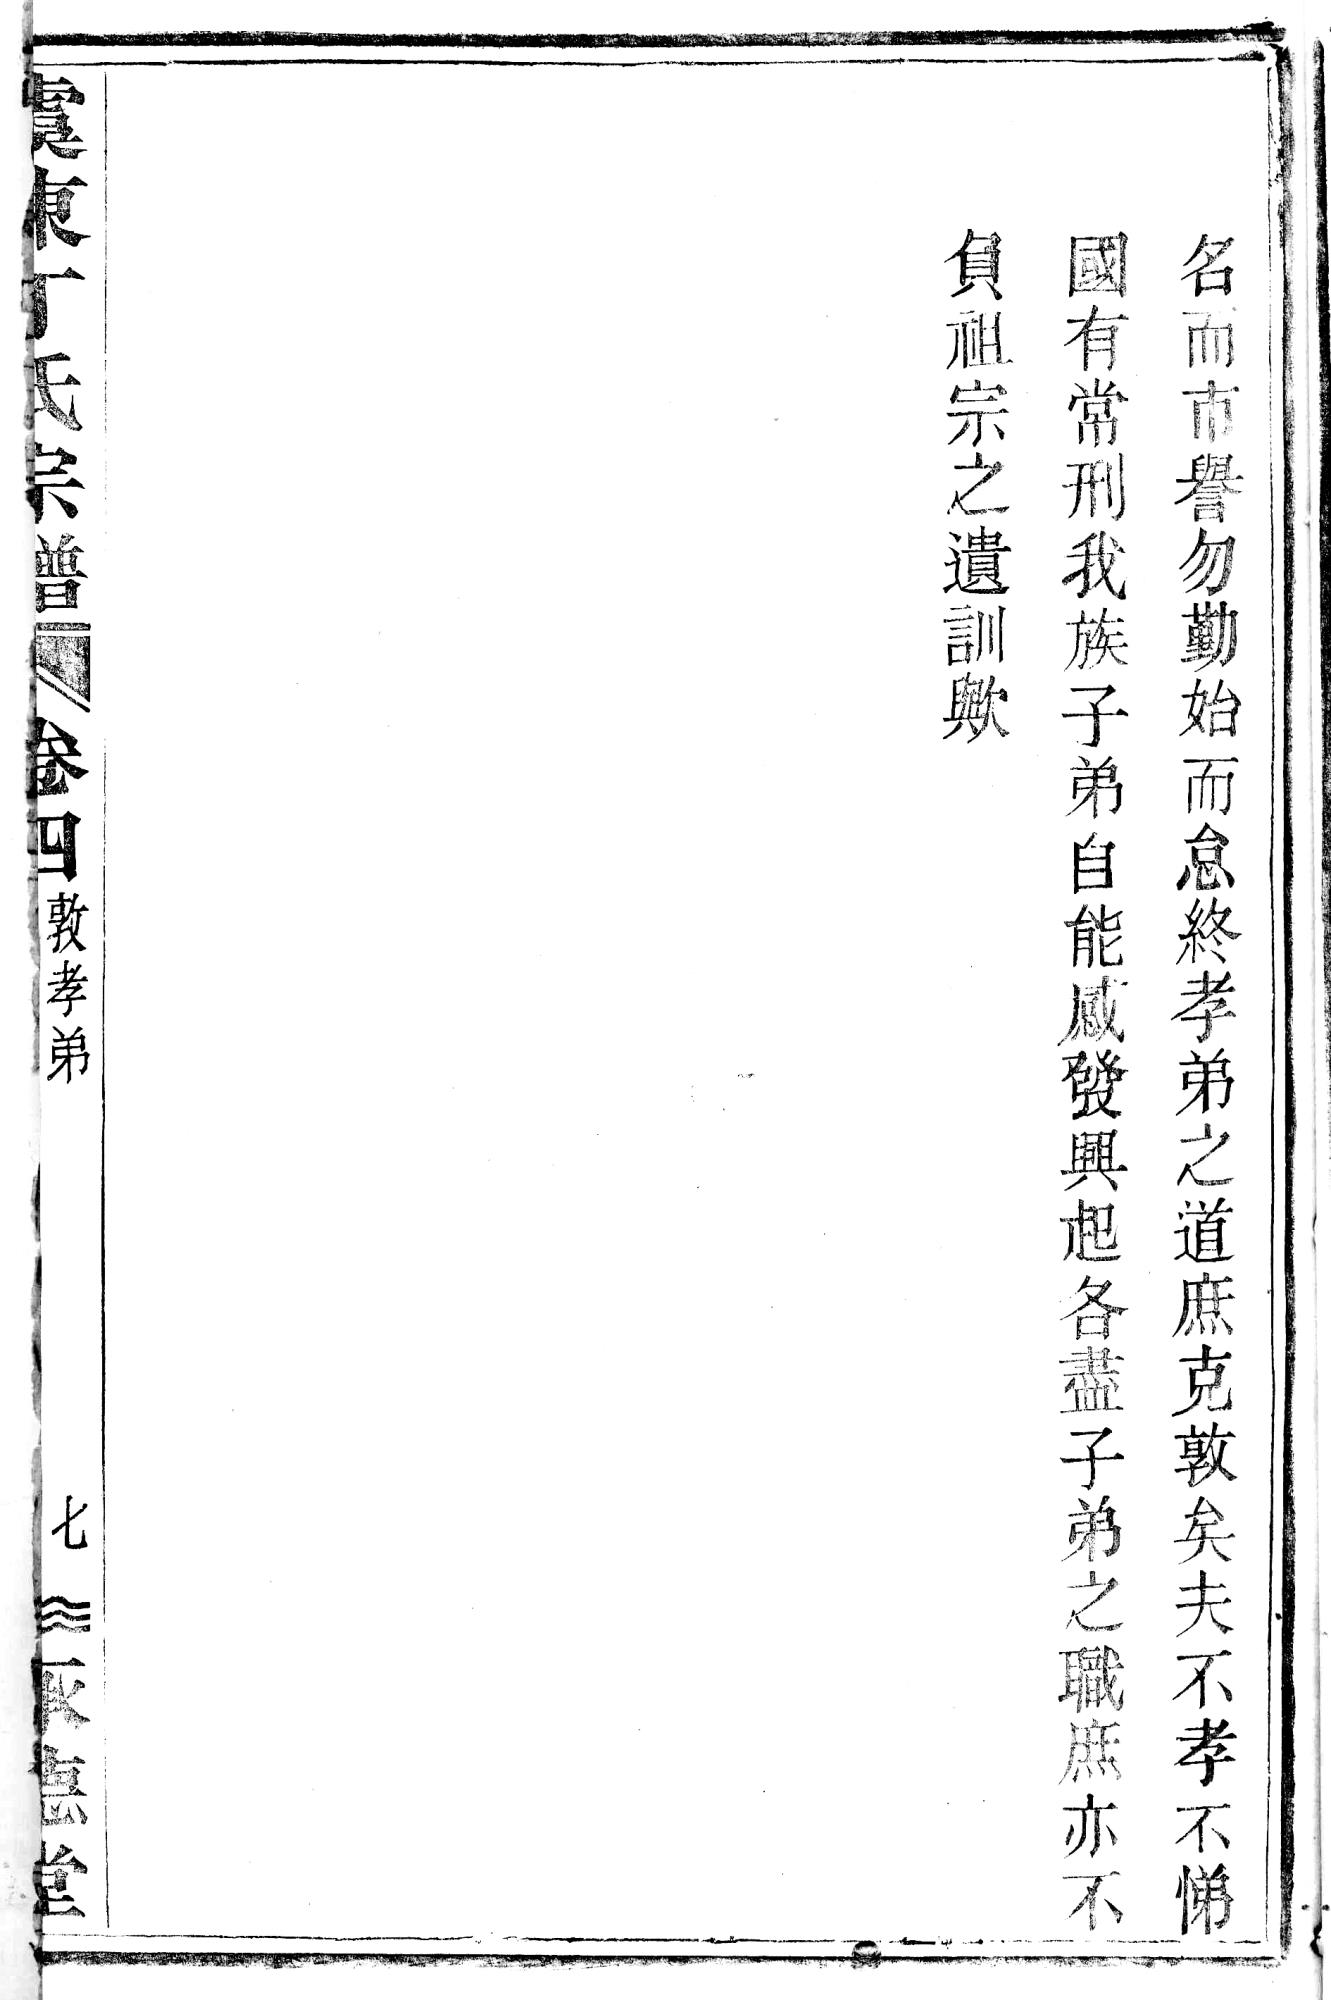 名而市譽勿勤始而怠終孝弟之道庶克敦矣夫不孝不悌
國有常刑我族子弟自能感發興起各盡子弟之職庶亦不
負祖宗之遺訓歟
虞東丁氏宗譜
卷四
敦孝弟
七
承德堂